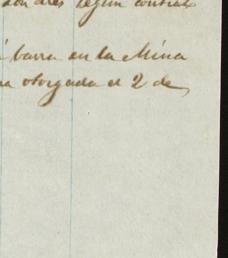 son dres segun contrat
barra en la Mina
otorgada el 2 de